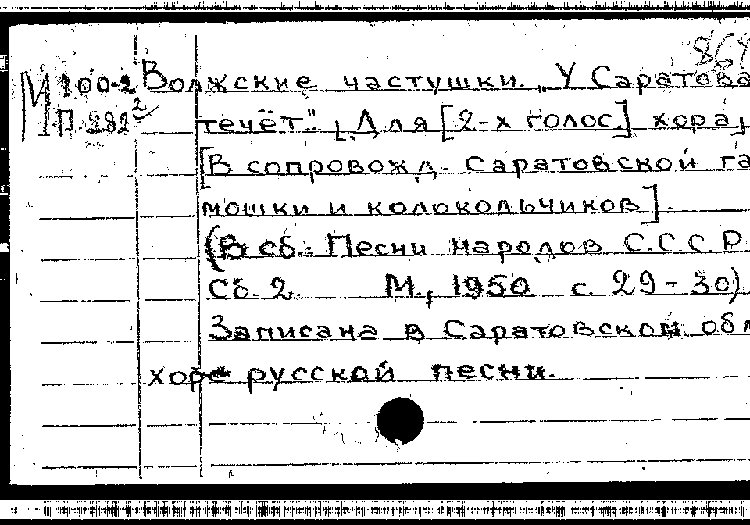 864
М 100-2 Волжские частушки. „У Саратова
П. 282² течёт". [Для [2-х голос.] хора,
[В сопровожд. Саратовской га
мошки и колокольчиков].
(В сб.: Песни народов С.С.С.Р.
Сб. 2. М., 1950 с. 29-30)
Записана в Саратовской обл
хоре русской песни.